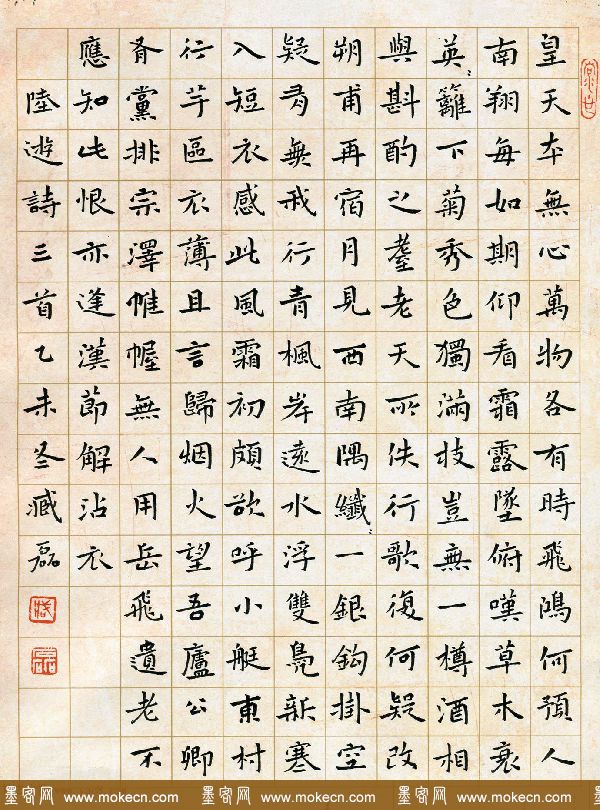 皇天本無心萬物各有時飛鴻何預人
南翔每如期仰看霜露墜俯嘆草木衰
英籬下菊秀色獨滿枝豈無一樽酒相
與斟酌之耋老天所佚行歌復何疑改
朔甫再宿月見西南隅纖一銀鉤掛空
疑有無我行青楓岸遠水浮雙鳧新寒
入短衣感此風霜初頗欲呼小艇東村
行芋區衣薄且言歸烟火望吾廬公卿
有黨排宗澤帷幄無人用岳飛遺老不
應知此恨亦逢漢節解沾衣
陸遊詩三首乙未冬臧磊
墨客网 www.mokecn.com 墨客网 www.mokecn.com 墨客网 www.mokecn.com